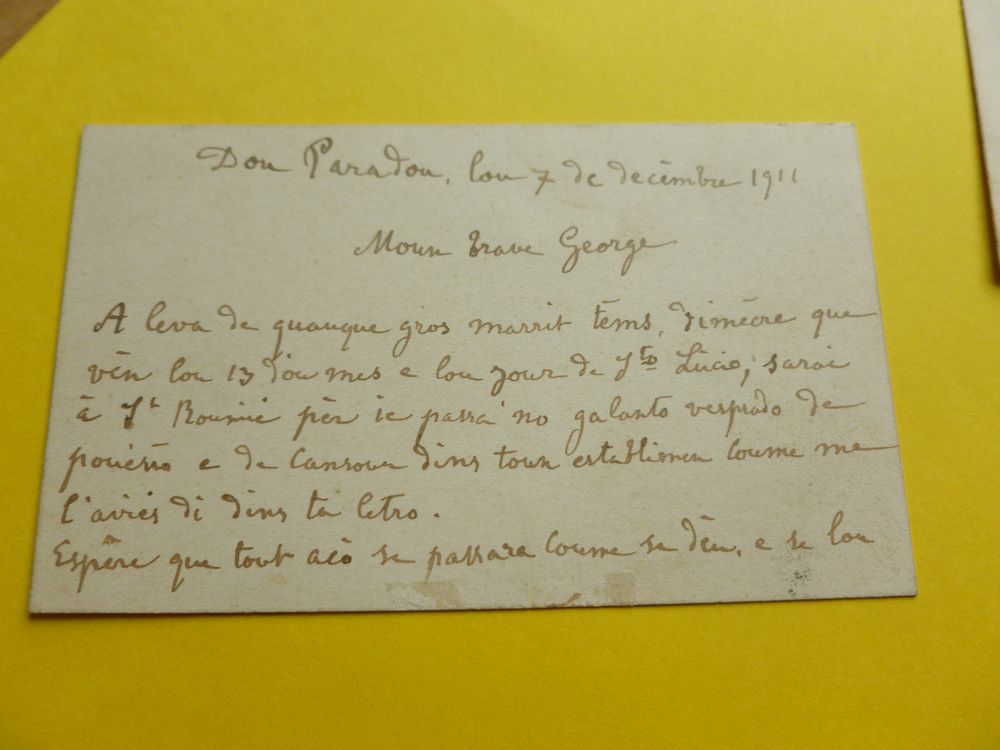 Dou Paradou, lou 7 de decèmbre 1911
Moun brave George
A leva de quauque gros marrit tèms, dimècre que
vèn lou 13 dóu mes e lou jour de Sto Lùcio, sarai
à St Roumié pèr ie passa 'no galanto vesprado de
pouësio e de cansoun dins toun establimen coume me
l'aviés di dins ta letro.
Espère que tout acò se passara coume se dèu, e se lou